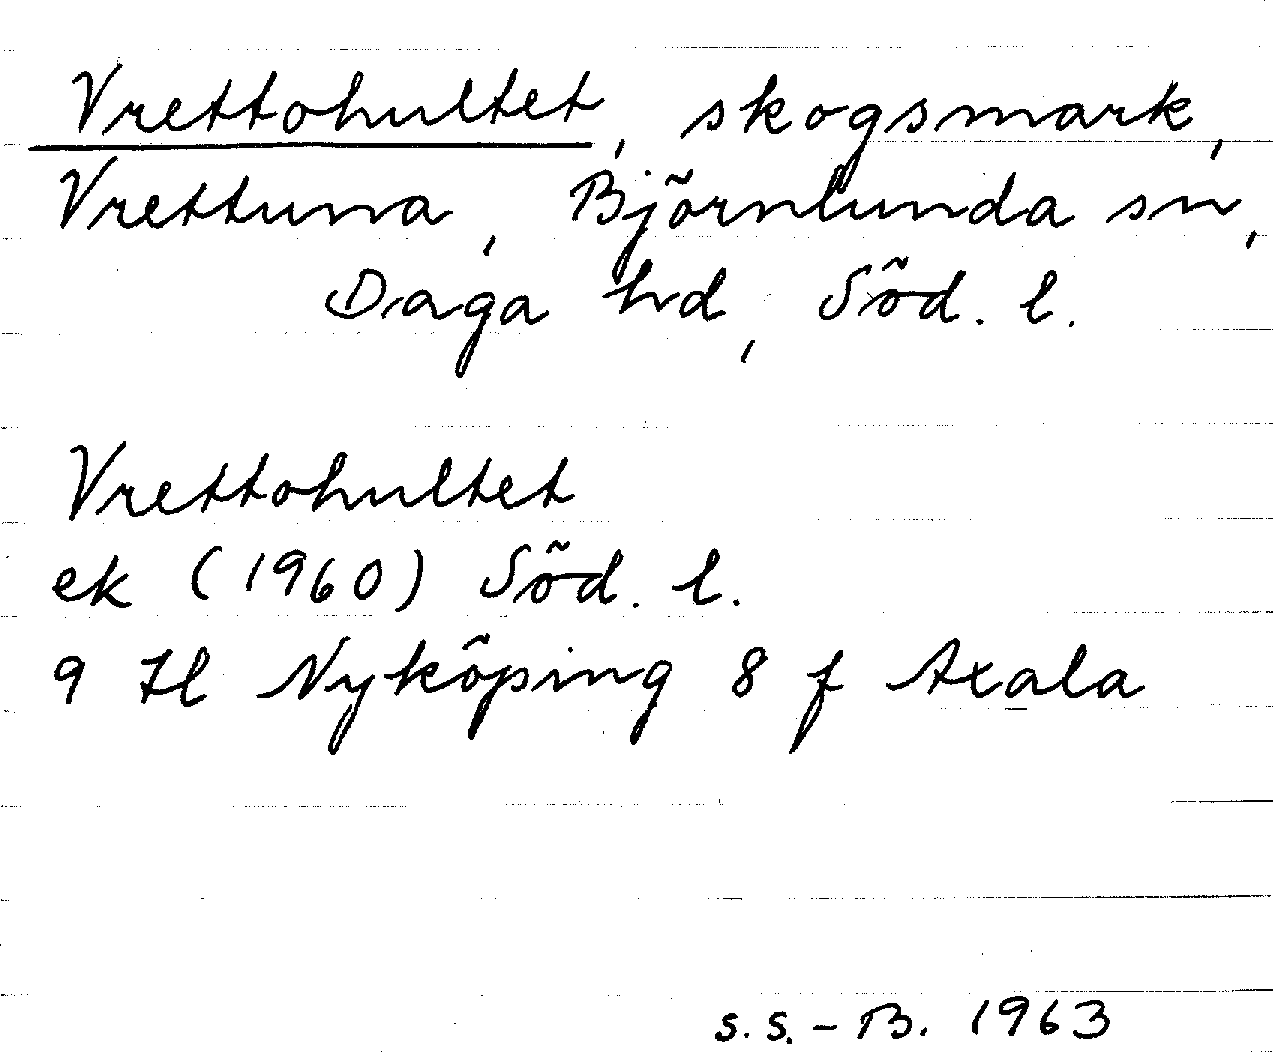 Vrettohultet, skogsmark,
Vrettuna, Björnlunda sn,
Daga hd, Söd. l.
Vrettohultet
ek (1960) Söd. l.
9 H Nyköping 8 f Axala
S.S.-B. 1963